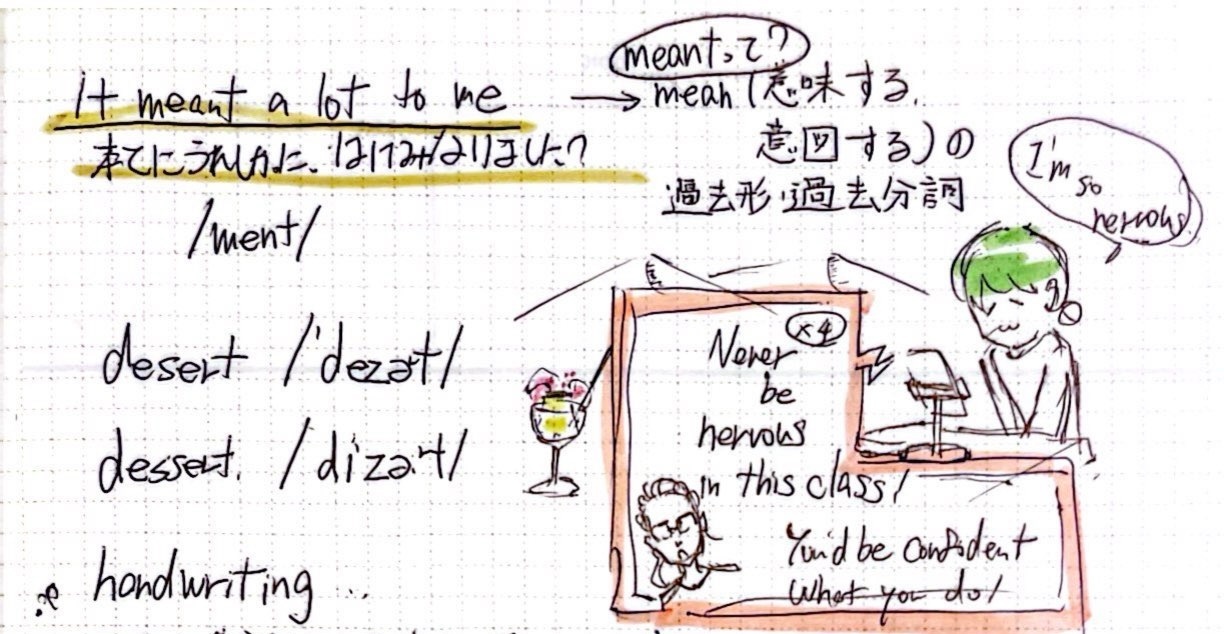 It meant a lot to me
本とにうれしかった、はげみになりました?
/ment/
meantって?
→ mean (意味する,
意図する)の
過去形・過去分詞
I'm
so
nervous
desert /'dezət/
dessert. /dizə:t/
handwriting ..
×4
Never
be
nervous
in this class!
You'd be confident
What you do!